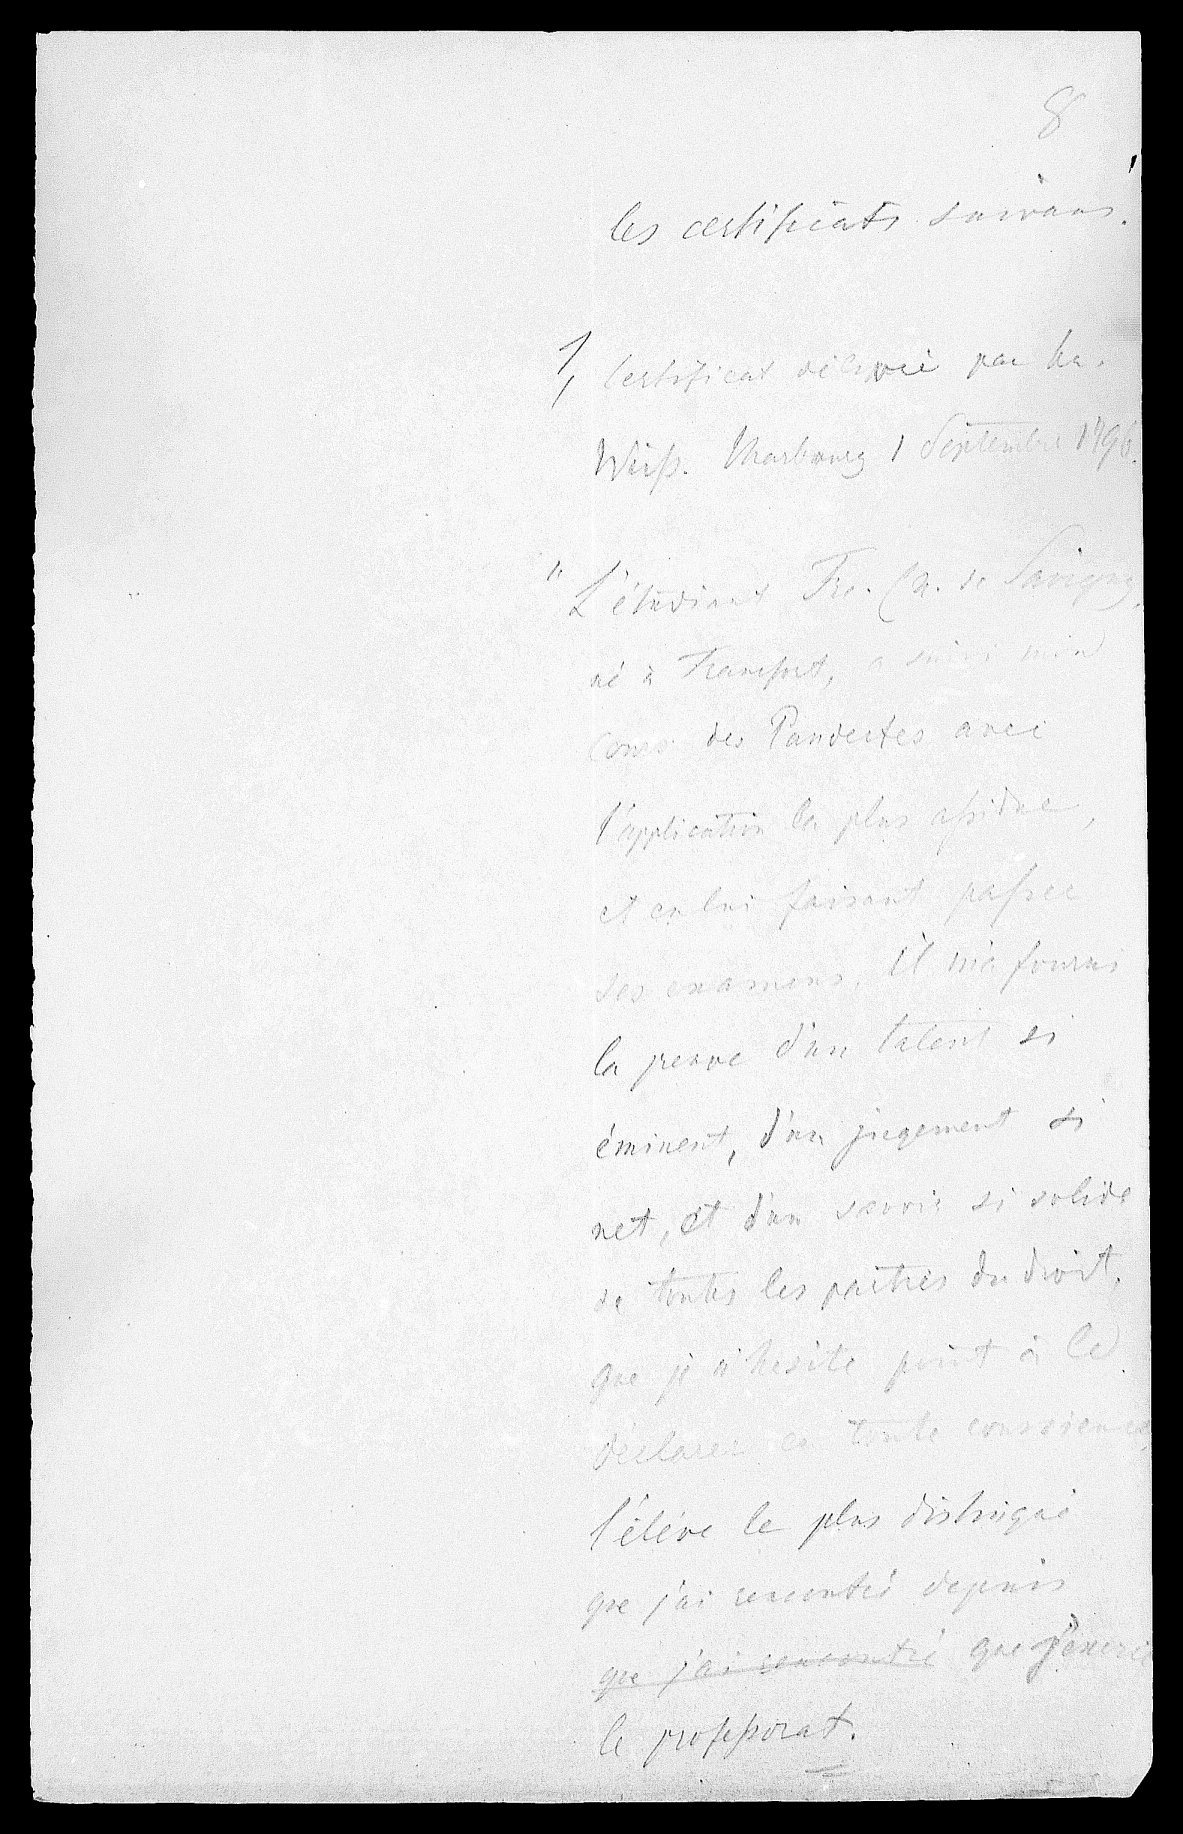 8
les certificats suivans.
1, Certificat délivré par
Weiss. Marbourg 1 Septembre 1796.
" L'étudiant Fre. Ch. de Savigny,
né à Francfort, a suivi mon
cours des Pandectes avec
l'application la plus assidue,
et en lui faisant passer
ses examens, il m'a fourni
la preuve d'un talent si
éminent, d'un jugement si
net, et d'un savoir si solide
de toutes les parties du droit,
que je n'hésite point à le
déclarer en toute conscience,
l'élève le plus distingué
que j'ai rencontré depuis
que j'ai rencontré que j'exerce
le professorat.